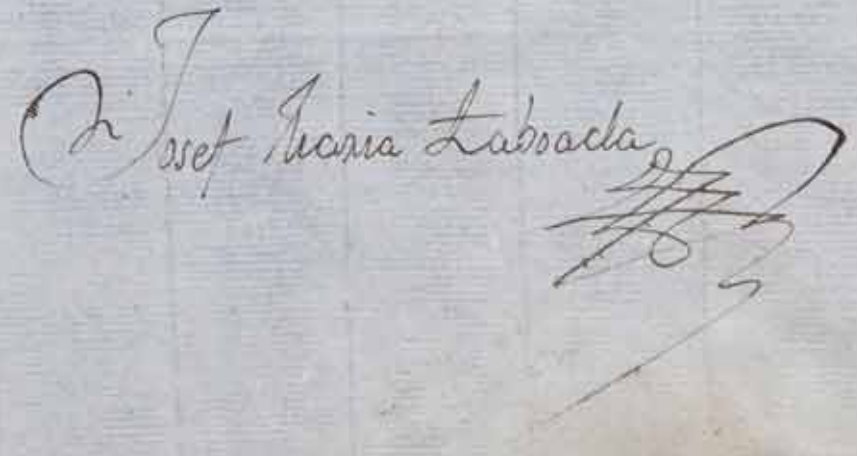 Dⁿ Josef Maria Taboada